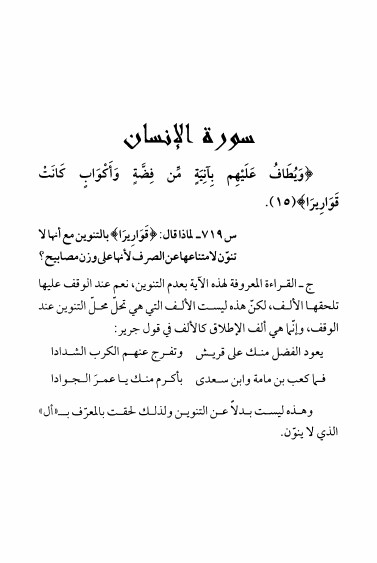 سورة الإنسان
﴿وَيُطَافُ عَلَيْهِم بِآنِيَةٍ مِّن فِضَّةٍ وَأَكْوَابٍ كَانَتْ
قَوَارِيرَا﴾(١٥).
س ٧١٩ـ لماذا قال: ﴿قَوَارِيرَا﴾ بالتنوين مع أنها لا
تنوّن لامتناعها عن الصرف لأنها على وزن مصابيح؟
ج ـ القراءة المعروفة لهذه الآية بعدم التنوين، نعم عند الوقف عليها
تلحقها الألف، لكنّ هذه ليست الألف التي هي تحلّ محلّ التنوين عند
الوقف، وإنّما هي ألف الإطلاق كالألف في قول جرير:
يعود الفضل منك على قريش وتفرج عنهم الكرب الشدادا
فما كعب بن مامة وابن سعدى بأكرم منك يا عمرَ الجوادا
وهذه ليست بدلاً عن التنوين ولذلك لحقت بالمعرّف بـ«أل»
الذي لا ينوّن.